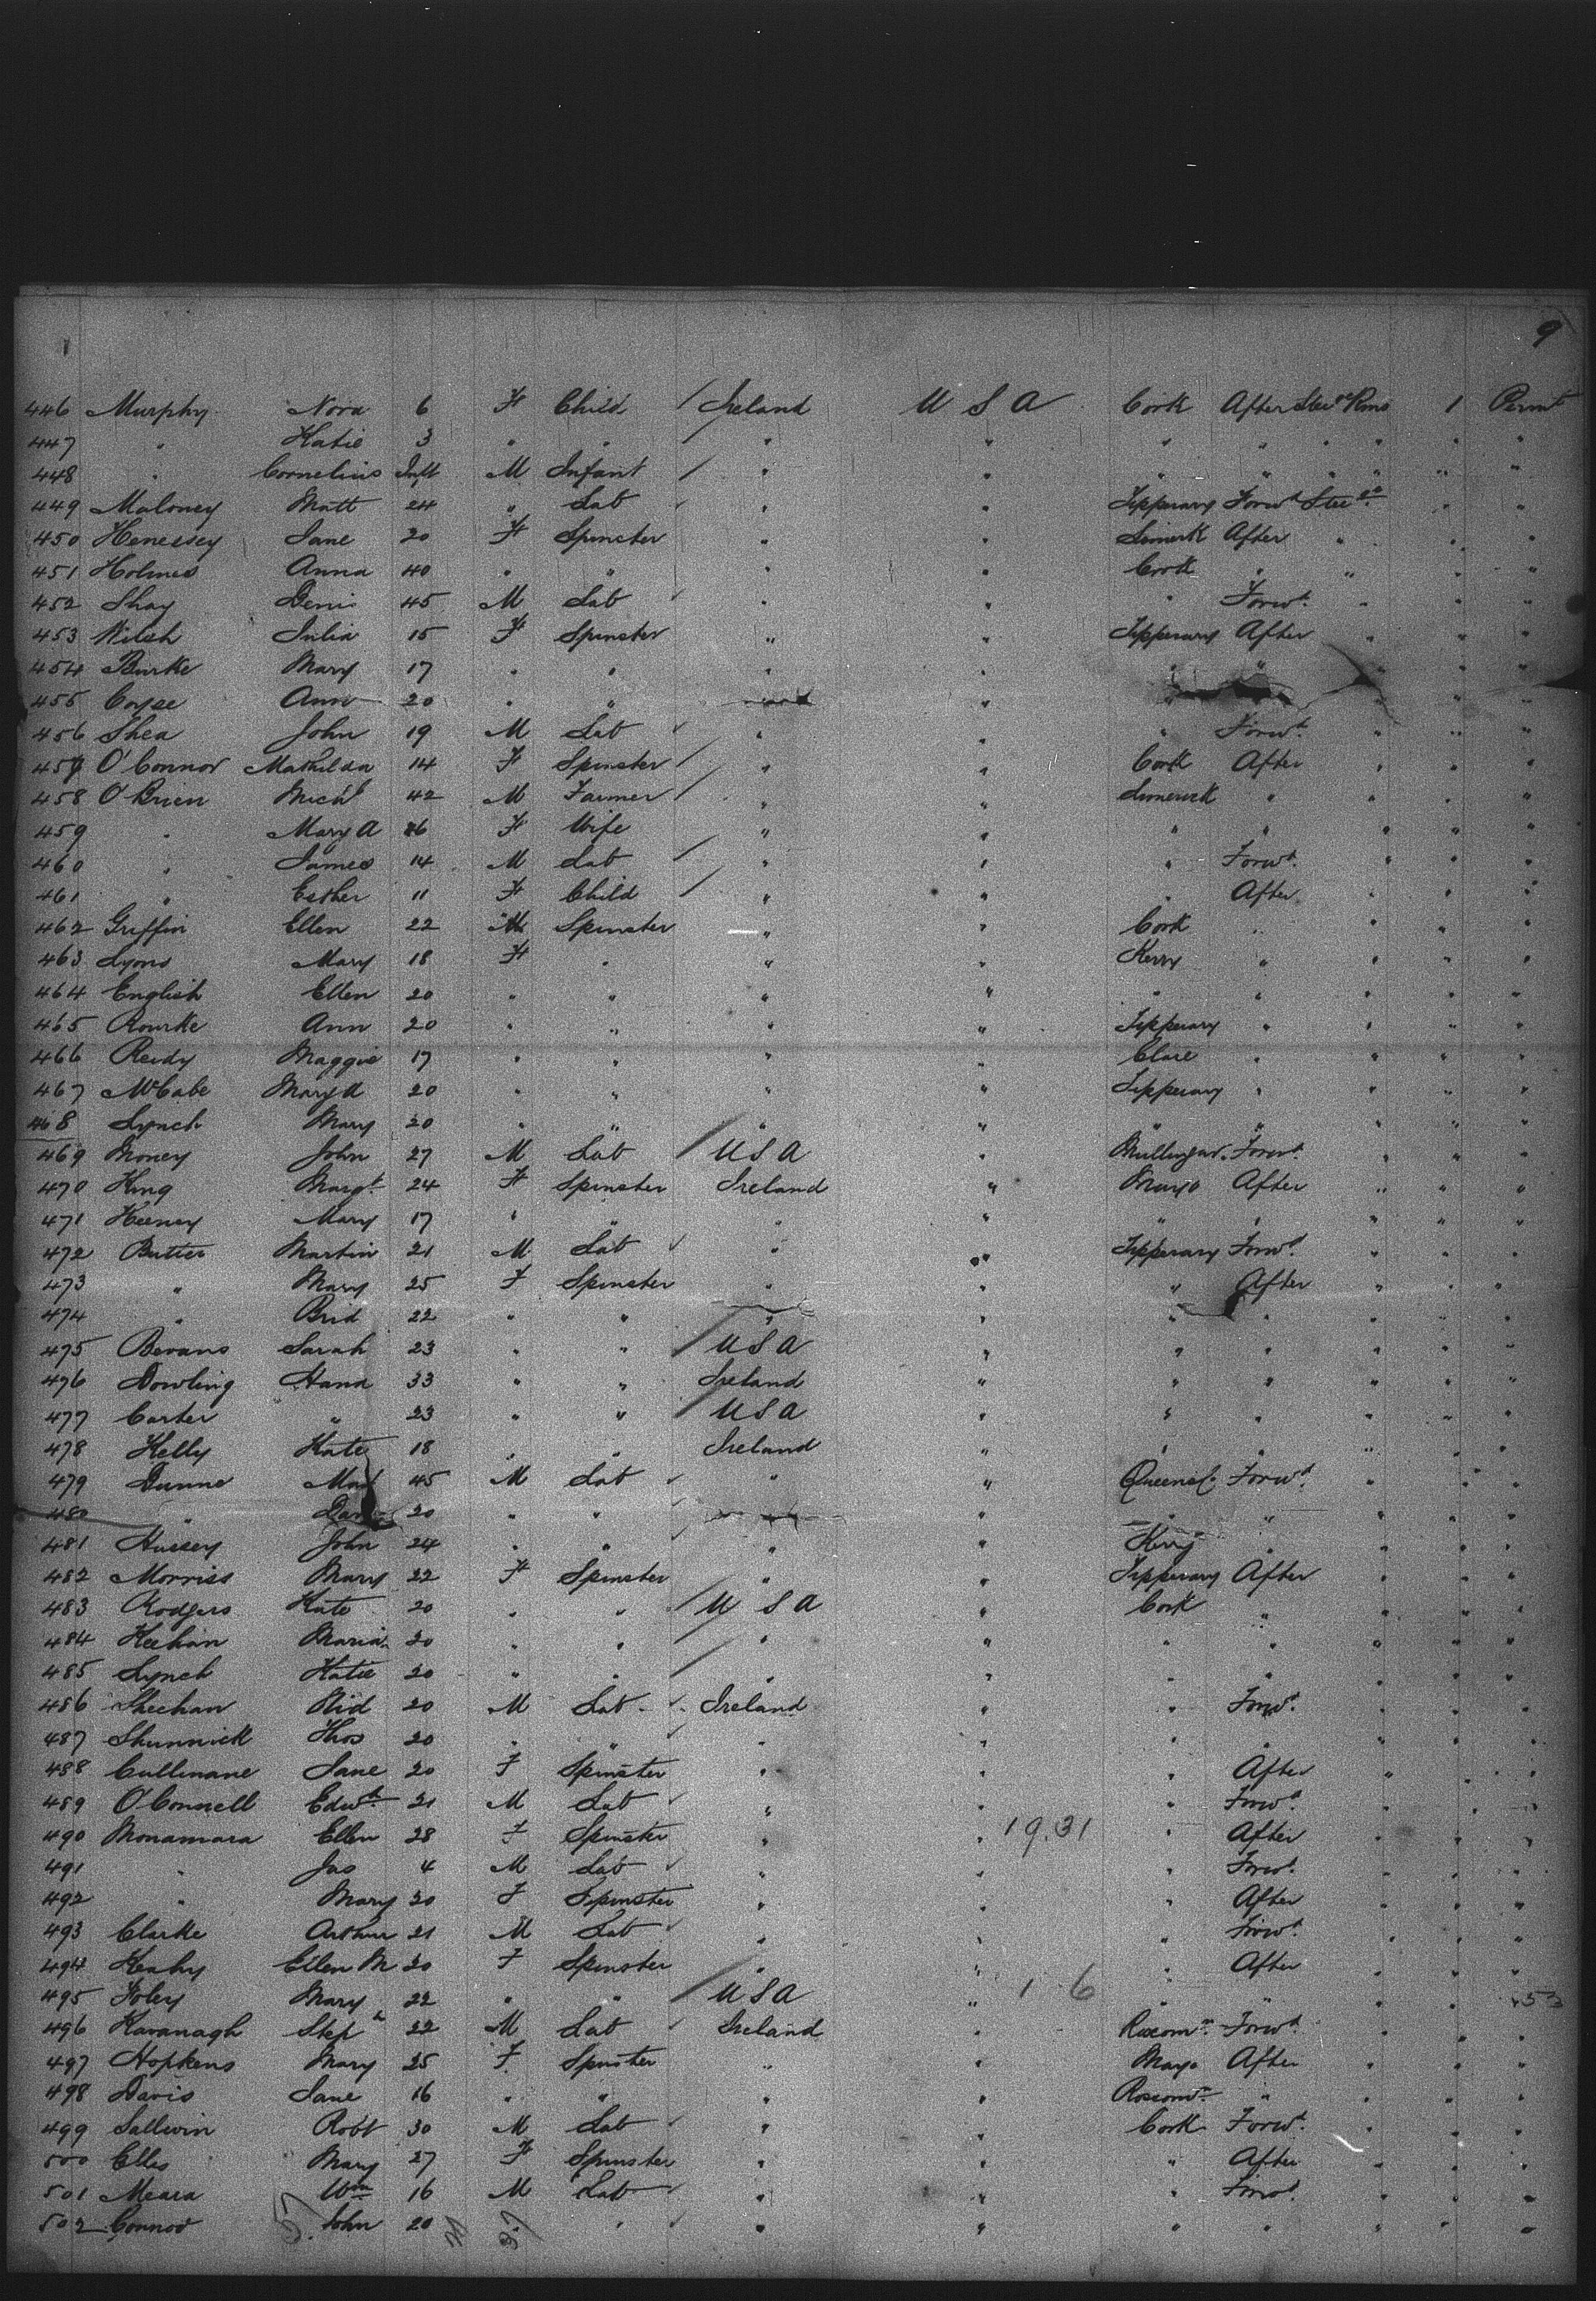 9
446 Murphy Nora 6 F Child / Ireland U S A Cork After Stee Rms 1 Permt
447 " Katie 3 " " / " " " " " " " "
448 " Cornelius Inft M Infant / " " " " " " " "
449 Maloney Matt 24 " Lab " " Tipperary Forwd Stee " "
450 Henessey Jane 20 F Spinster " " Limerk After " " "
451 Holmes Anna 40 " " " " Cork " " " "
452 Shay Denis 45 M Lab " " " Forwd " " "
453 Julia 15 F Spinster " " Tipperary After " " "
454 Burke Mary 17 " " " " " " " " "
455 Ann 20 " " " " " " "
456 Shea John 19 M Lab " " " Forwd " " "
457 O'Connor Mathilda 14 F Spinster / " " Cork After " " "
458 O'Brien Michl 42 M Farmer / " " Limerick " " " "
459 " Mary A F Wife " " " " " " "
460 " James 14 M Lab / " " " Forwd " " "
461 " Esther 11 F Child / " " " After " " "
462 Griffin Ellen 22 M Spinster " " Cork " " " "
463 Lyons Mary 18 F " " " Kerry " " " "
464 English Ellen 20 " " " " " " " " "
465 Rourke Ann 20 " " " " Tipperary " " " "
466 Reidy Maggie 17 " " " " Clare " " " "
467 McCabe Mary A 20 " " " " Tipperary " " " "
468 Lynch Mary 20 " " " " " " " " "
469 Money John 27 M Lab / U S A " Mullingar Forwd " " "
470 King Margt 24 F Spinster Ireland " Mayo After " " "
471 Heeney Mary 17 " " " " " " " " "
472 Butler Martin 21 M Lab " " Tipperary Forwd " " "
473 " Mary 25 F Spinster " " " After " " "
474 " Brid 22 " " " " " " " " "
475 Bevans Sarah 23 " " / U S A " " " " " "
476 Dowling Hana 33 " " Ireland " " " " " "
477 Carter " 23 " " / U S A " " " " " "
478 Kelly Kate 18 " " Ireland " " " " " "
479 Dunne 45 M Lab " " Queens C. Forwd " " "
480 " 20 " " " " " " " "
481 Hussey John 24 " " " " Kerry " " " "
482 Morriss Mary 22 F Spinster " " Tipperary After " " "
483 Rodgers Kate 20 " " / U S A " Cork " " " "
484 Keehan Maria 20 " " / " " " " " " "
485 Lynch Katie 20 " " / " " " " " " "
486 Sheehan 20 M Lab Ireland " " Forwd " " "
487 Shunnick Thos 20 " " " " " " " " "
488 Cullinane Jane 20 F Spinster " " " After " " "
489 O'Connell Edwd 21 M Lab " " " Forwd " " "
490 Monamara Ellen 28 F Spinster " " 19.31 " After " " "
491 " Jas 4 M Lab " " " Forwd " " "
492 " Mary 20 F Spinster " " " After " " "
493 Clarke Arthur 21 M Lab " " " Forwd " " "
494 Ellen M 20 F Spinster " " " After " " "
495 Foley Mary 22 " " / U S A " 1 6 " " " " 53
496 Kavanagh Steph 22 M Lab Ireland " Roscomn Forwd " " "
497 Hopkens Mary 25 F Spinster " " Mayo After " " "
498 Davis Jane 16 " " " " Roscomn " " " "
499 Sallivin Robt 30 M Lab " " Cork Forwd " " "
500 Elles Mary 27 F Spinster " " " After " " "
501 Meara Wm 16 M Lab " " " Forwd " " "
502 Connor John 20 " " " " " " " " "